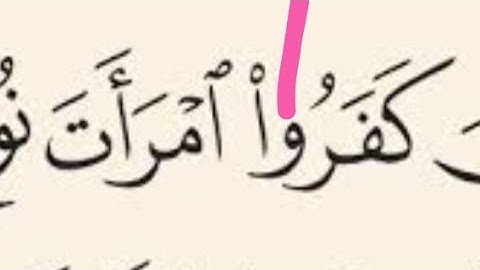 كَفَرُوا۟ ٱمْرَأَتَ